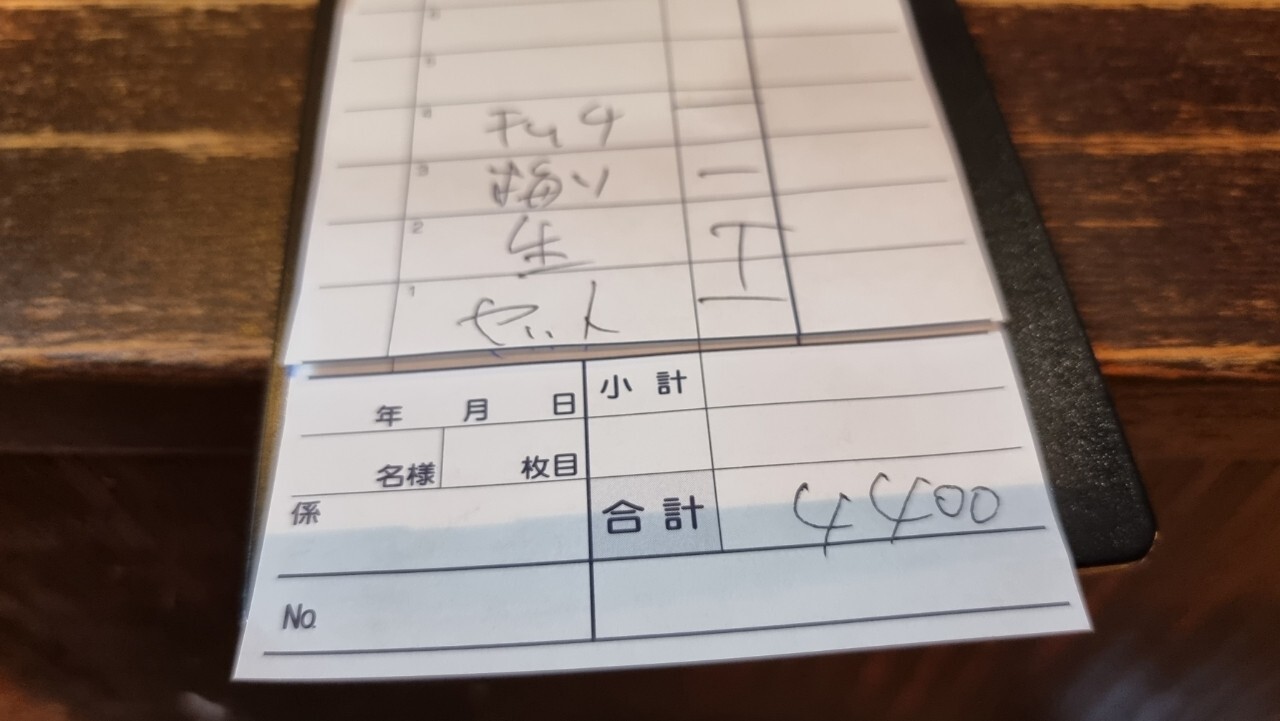 6
5
4 キムチ
3 梅ソ 一
2 生 T
1 セット 一
年 月 日 小計
名様 枚目
係 合計 4400
No.